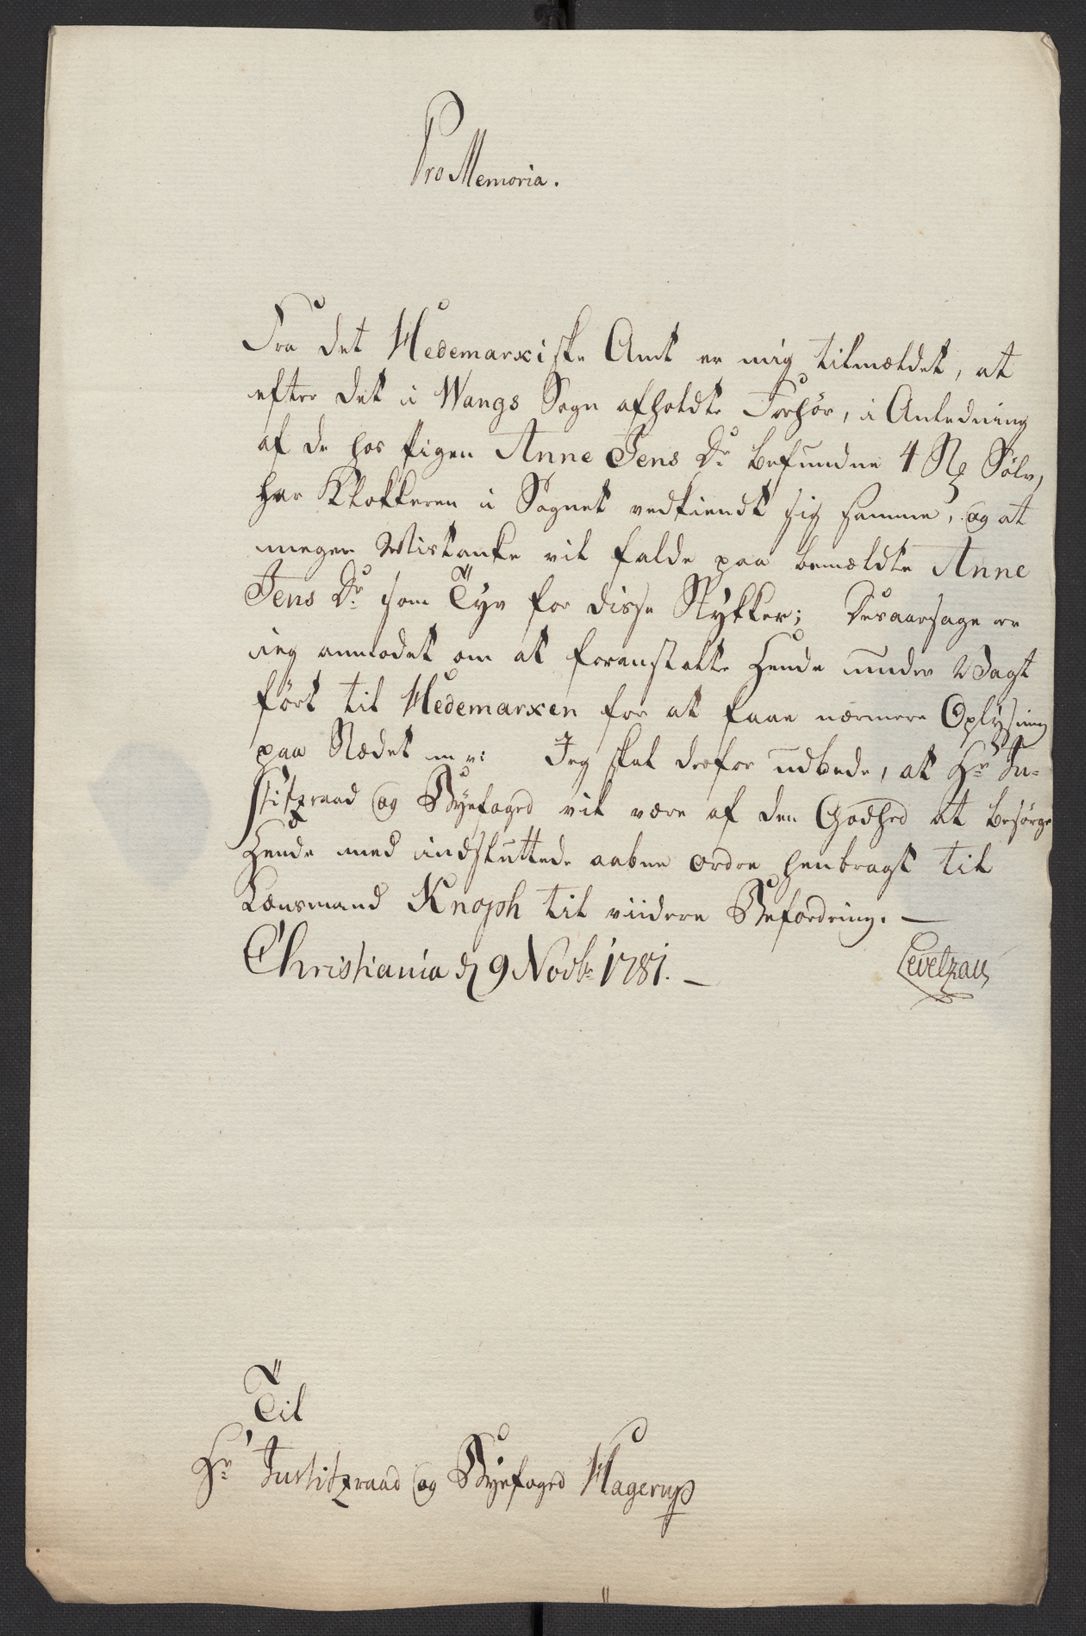 Pro Memoria.
Fra det Hedemarxiske Amt er mig tilmældet, at
efter det i Wangs Sogn afholdte Forhør, i Anledning
af de hos Pigen Anne Jens Dr befundne 4 St Sølv,
har Klokkeren i Sognet vedkiendt sig samme, og at
megen Mistanke vil falde paa bemældte Anne
Jens Dr som Tyv for disse Stykker; Desaarsage er
ieg anmodet om at foranstalte Hende under Vagt
ført til Hedemarxen for at faae nærmere Oplysning
paa Stædet m v: Jeg skal derfor udbede, at Hr Ju-
stitzraad og Byefoged vil være af den Godhed at besørge
Hende med indsluttede aabne Ordre henbragt til
Lænsmand Knoph til viidere Befordring. —
Christiania d 9 Novbr 1781. —
Levetzau
Til
Hr Justitzraad og Byefoged Hagerup